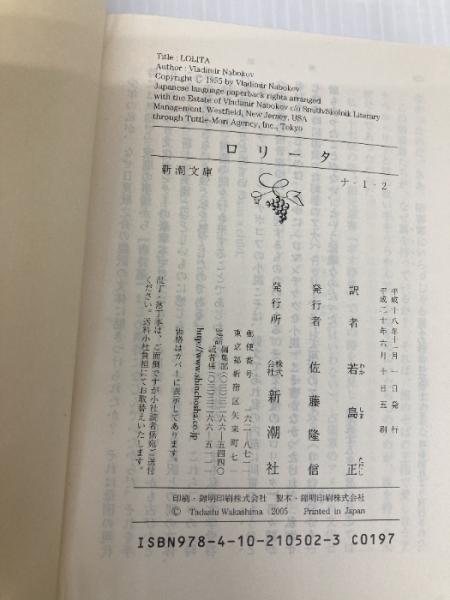 Title : LOLITA
Author : Vladimir Nabokov
Copyright © 1955 by Vladimir Nabokov
Japanese language paperback rights arranged
with the Estate of Vladimir Nabokov c/o Smith/Skolnik Literary
Management, Westfield, New Jersey, USA
through Tuttle-Mori Agency, Inc., Tokyo
ロリータ
新潮文庫
ナ-1-2
平成十八年十一月一日発行
平成二十年六月十日五刷
訳者 若島正
わか しま ただし
発行者 佐藤隆信
発行所 株式会社 新潮社
郵便番号 一六二―八七一一
東京都新宿区矢来町七一
http://www.shinchosha.co.jp
価格はカバーに表示してあります。
乱丁・落丁本は、ご面倒ですが小社読者係宛ご送付
ください。送料小社負担にてお取替えいたします。
印刷・錦明印刷株式会社 製本・錦明印刷株式会社
© Tadashi Wakashima 2005 Printed in Japan
ISBN978-4-10-210502-3 C0197